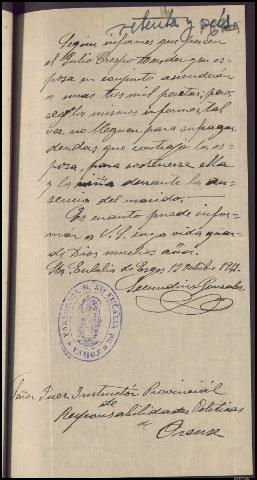 setenta y seis
Según informes que poseen
el Julio Crespo Mender y su es-
posa en conjunto ascenderán
a unas tres mil pesetas; pero,
según los mismos informes, tal
vez no lleguen para sufragar
deudas que contrajo la es-
posa, para sostenerse ella
y la niña durante la au-
sencia del marido.
Es cuanto puede infor-
mar a V. S. cuya vida guar-
de Dios muchos años.
Sta. Eulalia de Esgos 12 octubre 1941.
Secundino Gonzalez
PARROQUIA D. STA. EULALIA DE ESGOS
Señor Juez Instructor Provincial
de
Responsabilidades Politicas
de
Orense